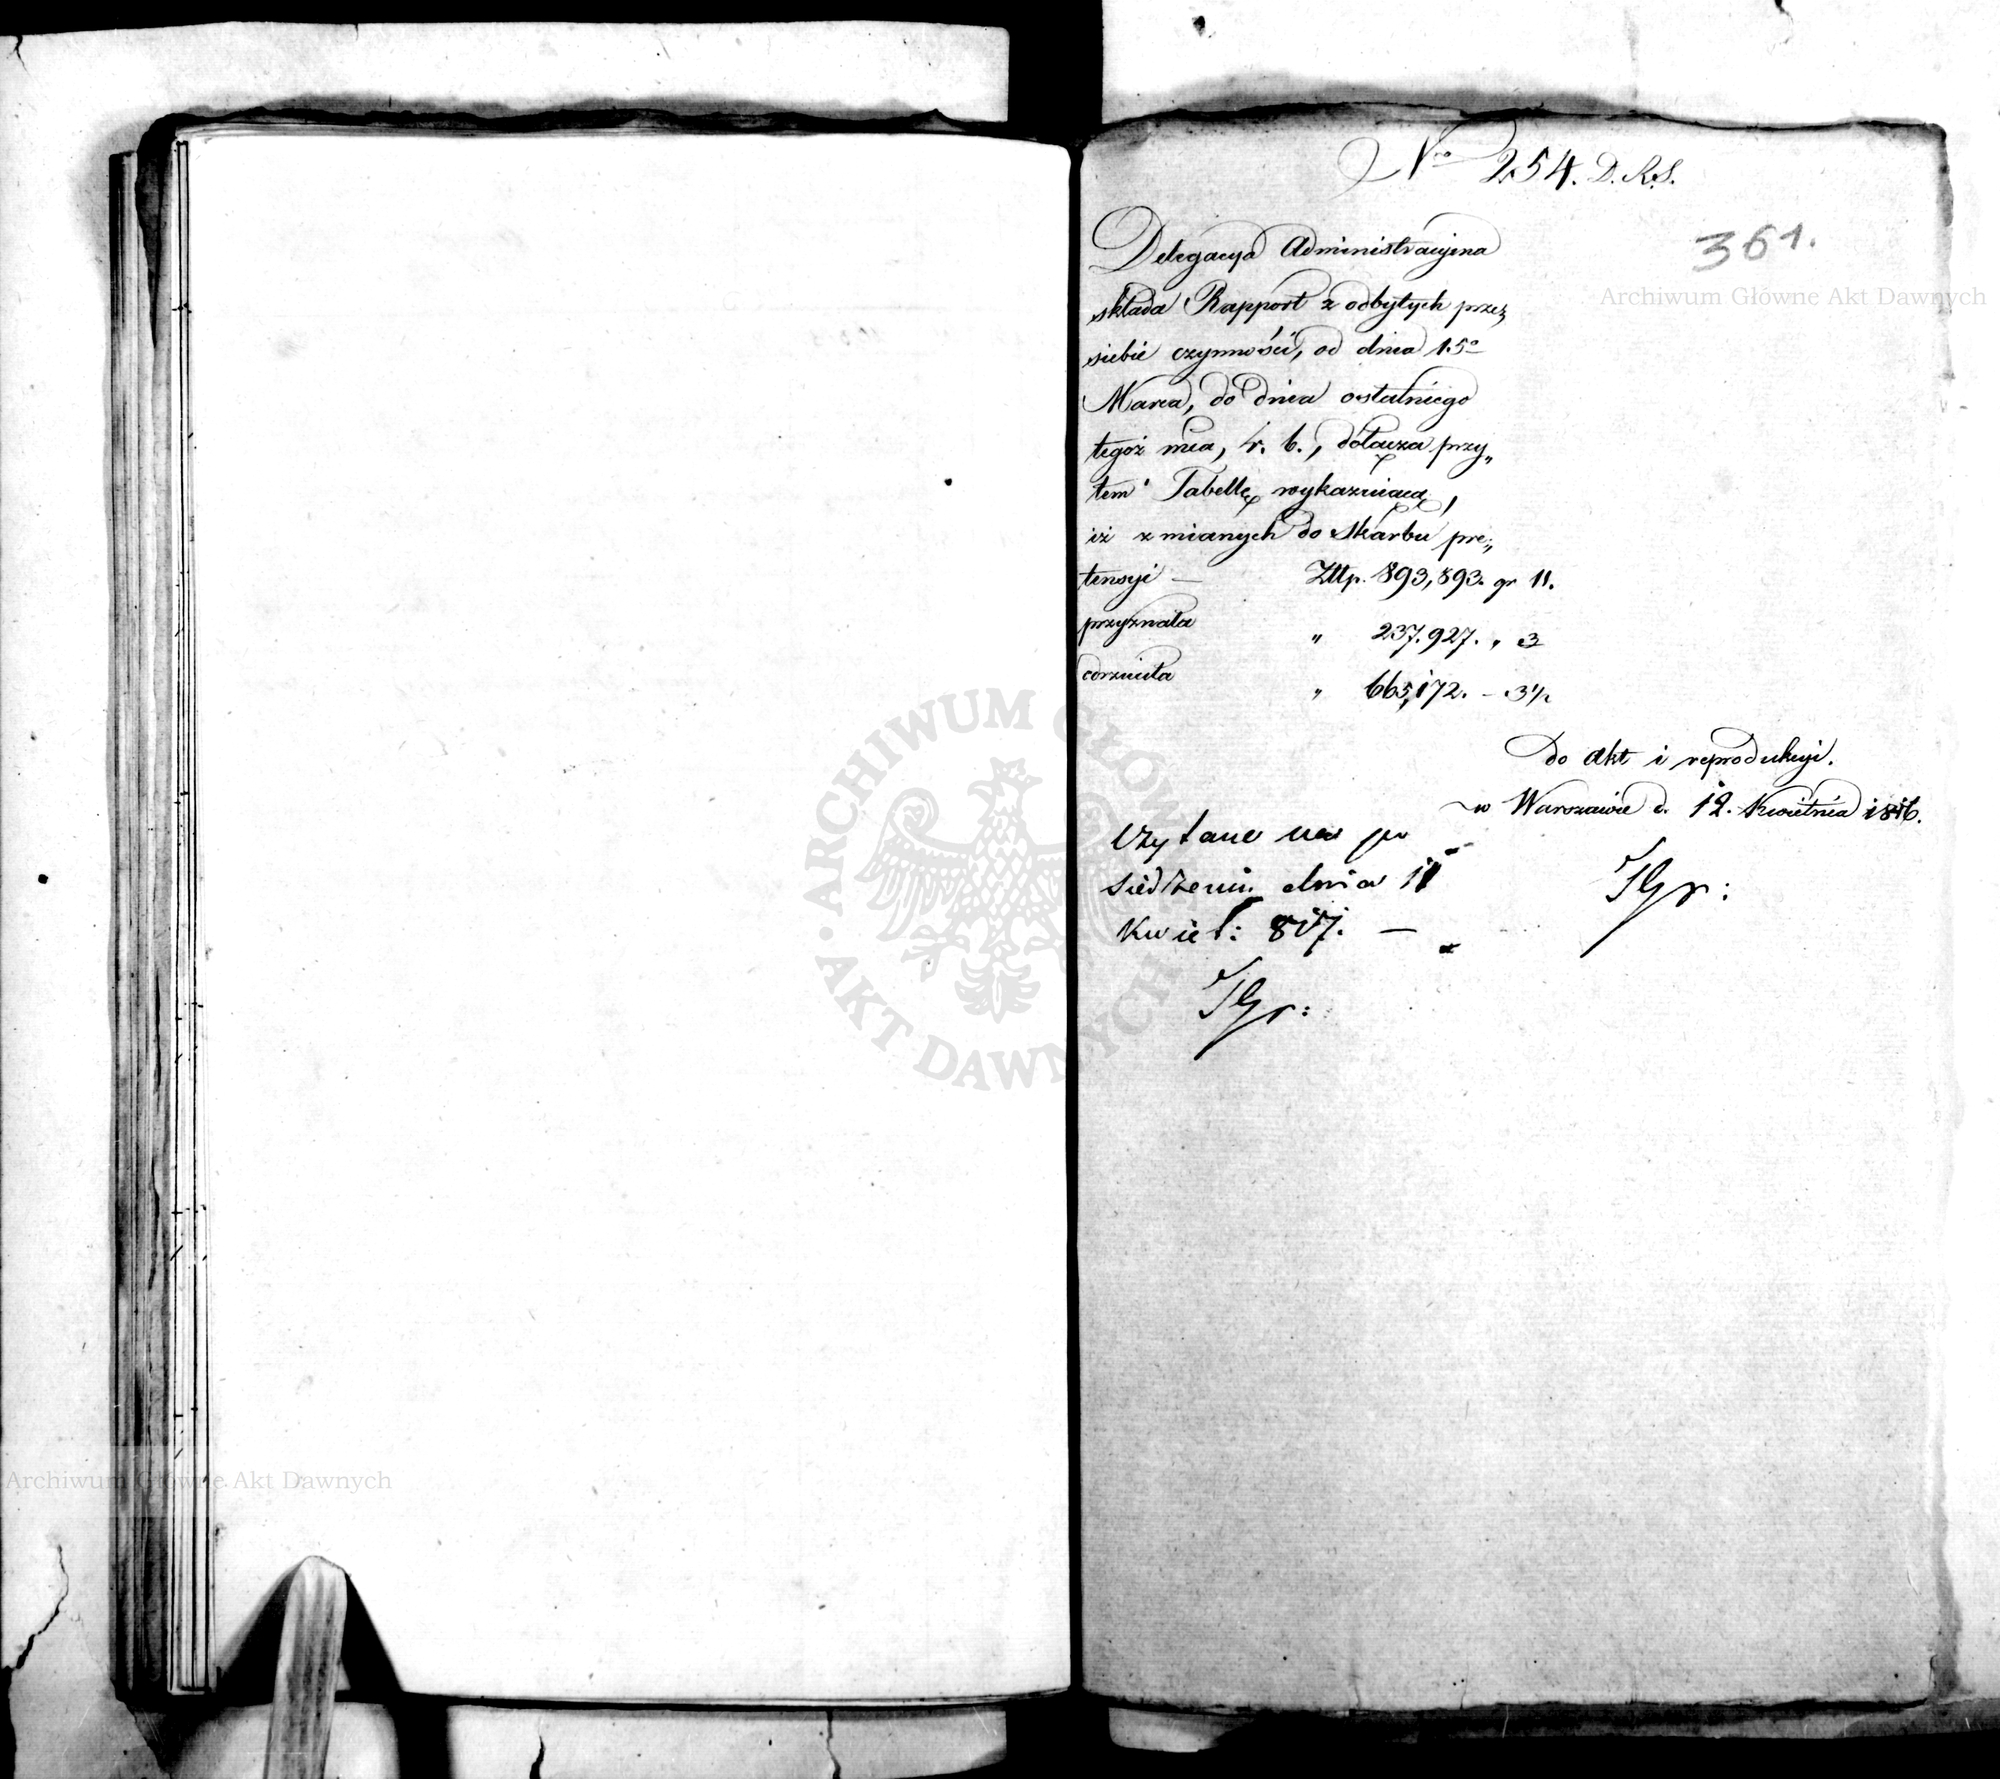 Nro 254. D.R.S.
361.
Archiwum Główne Akt Dawnych
Delegacya Administracyina
składa Rapport z odbytych przez
siebie czynności, od dnia 15o
Marca, do dnia ostatniego
tegoż mca, r. b., dołącza przy„
tem Tabellę wykazuiącą,
iż z mianych do Skarbu pre„
tensyi — Złłp. 893,893. gr 11.
przyznała „ 237.927. „ 3
odrzuciła „ 665,172. – 3½
Do Akt i reprodukcyi.
w Warszawie d. 12. Kwietnia
Czytane na po
siedzeniu dnia 11
Kwiet: 817. —
ARCHIWUM GŁÓWNE
AKT DAWNYCH
Archiwum Główne Akt Dawnych